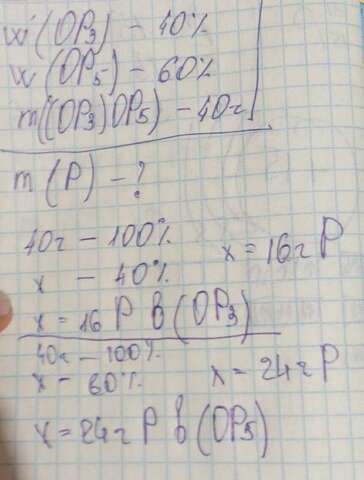 w (OP3) - 40%
w (OP5) - 60%
m((OP3)OP5) - 40г
m (P) - ?
40г - 100%
x - 40% x = 16г P
x = 16 P в (OP3)
40г - 100%
x - 60% x = 24г P
x = 24г P в (OP5)